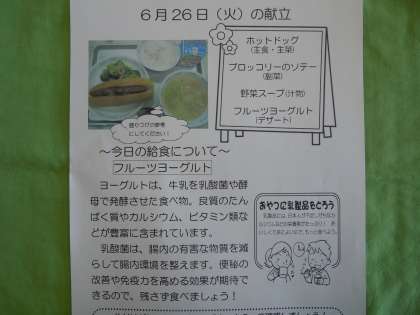 6月26日(火)の献立
ホットドッグ
(主食・主菜)
ブロッコリーのソテー
(副菜)
野菜スープ(汁物)
フルーツヨーグルト
(デザート)
盛りつけの参考
にしてください!
~今日の給食について~
フルーツヨーグルト
ヨーグルトは、牛乳を乳酸菌や酵
母で発酵させた食べ物。良質のたん
ぱく質やカルシウム、ビタミン類な
どが豊富に含まれています。
乳酸菌は、腸内の有害な物質を減
らして腸内環境を整えます。便秘の
改善や免疫力を高める効果が期待で
きるので、残さず食べましょう!
おやつに乳製品をとろう
乳製品には、日本人が不足しがちな
カルシウムなどの栄養素がたっぷり!